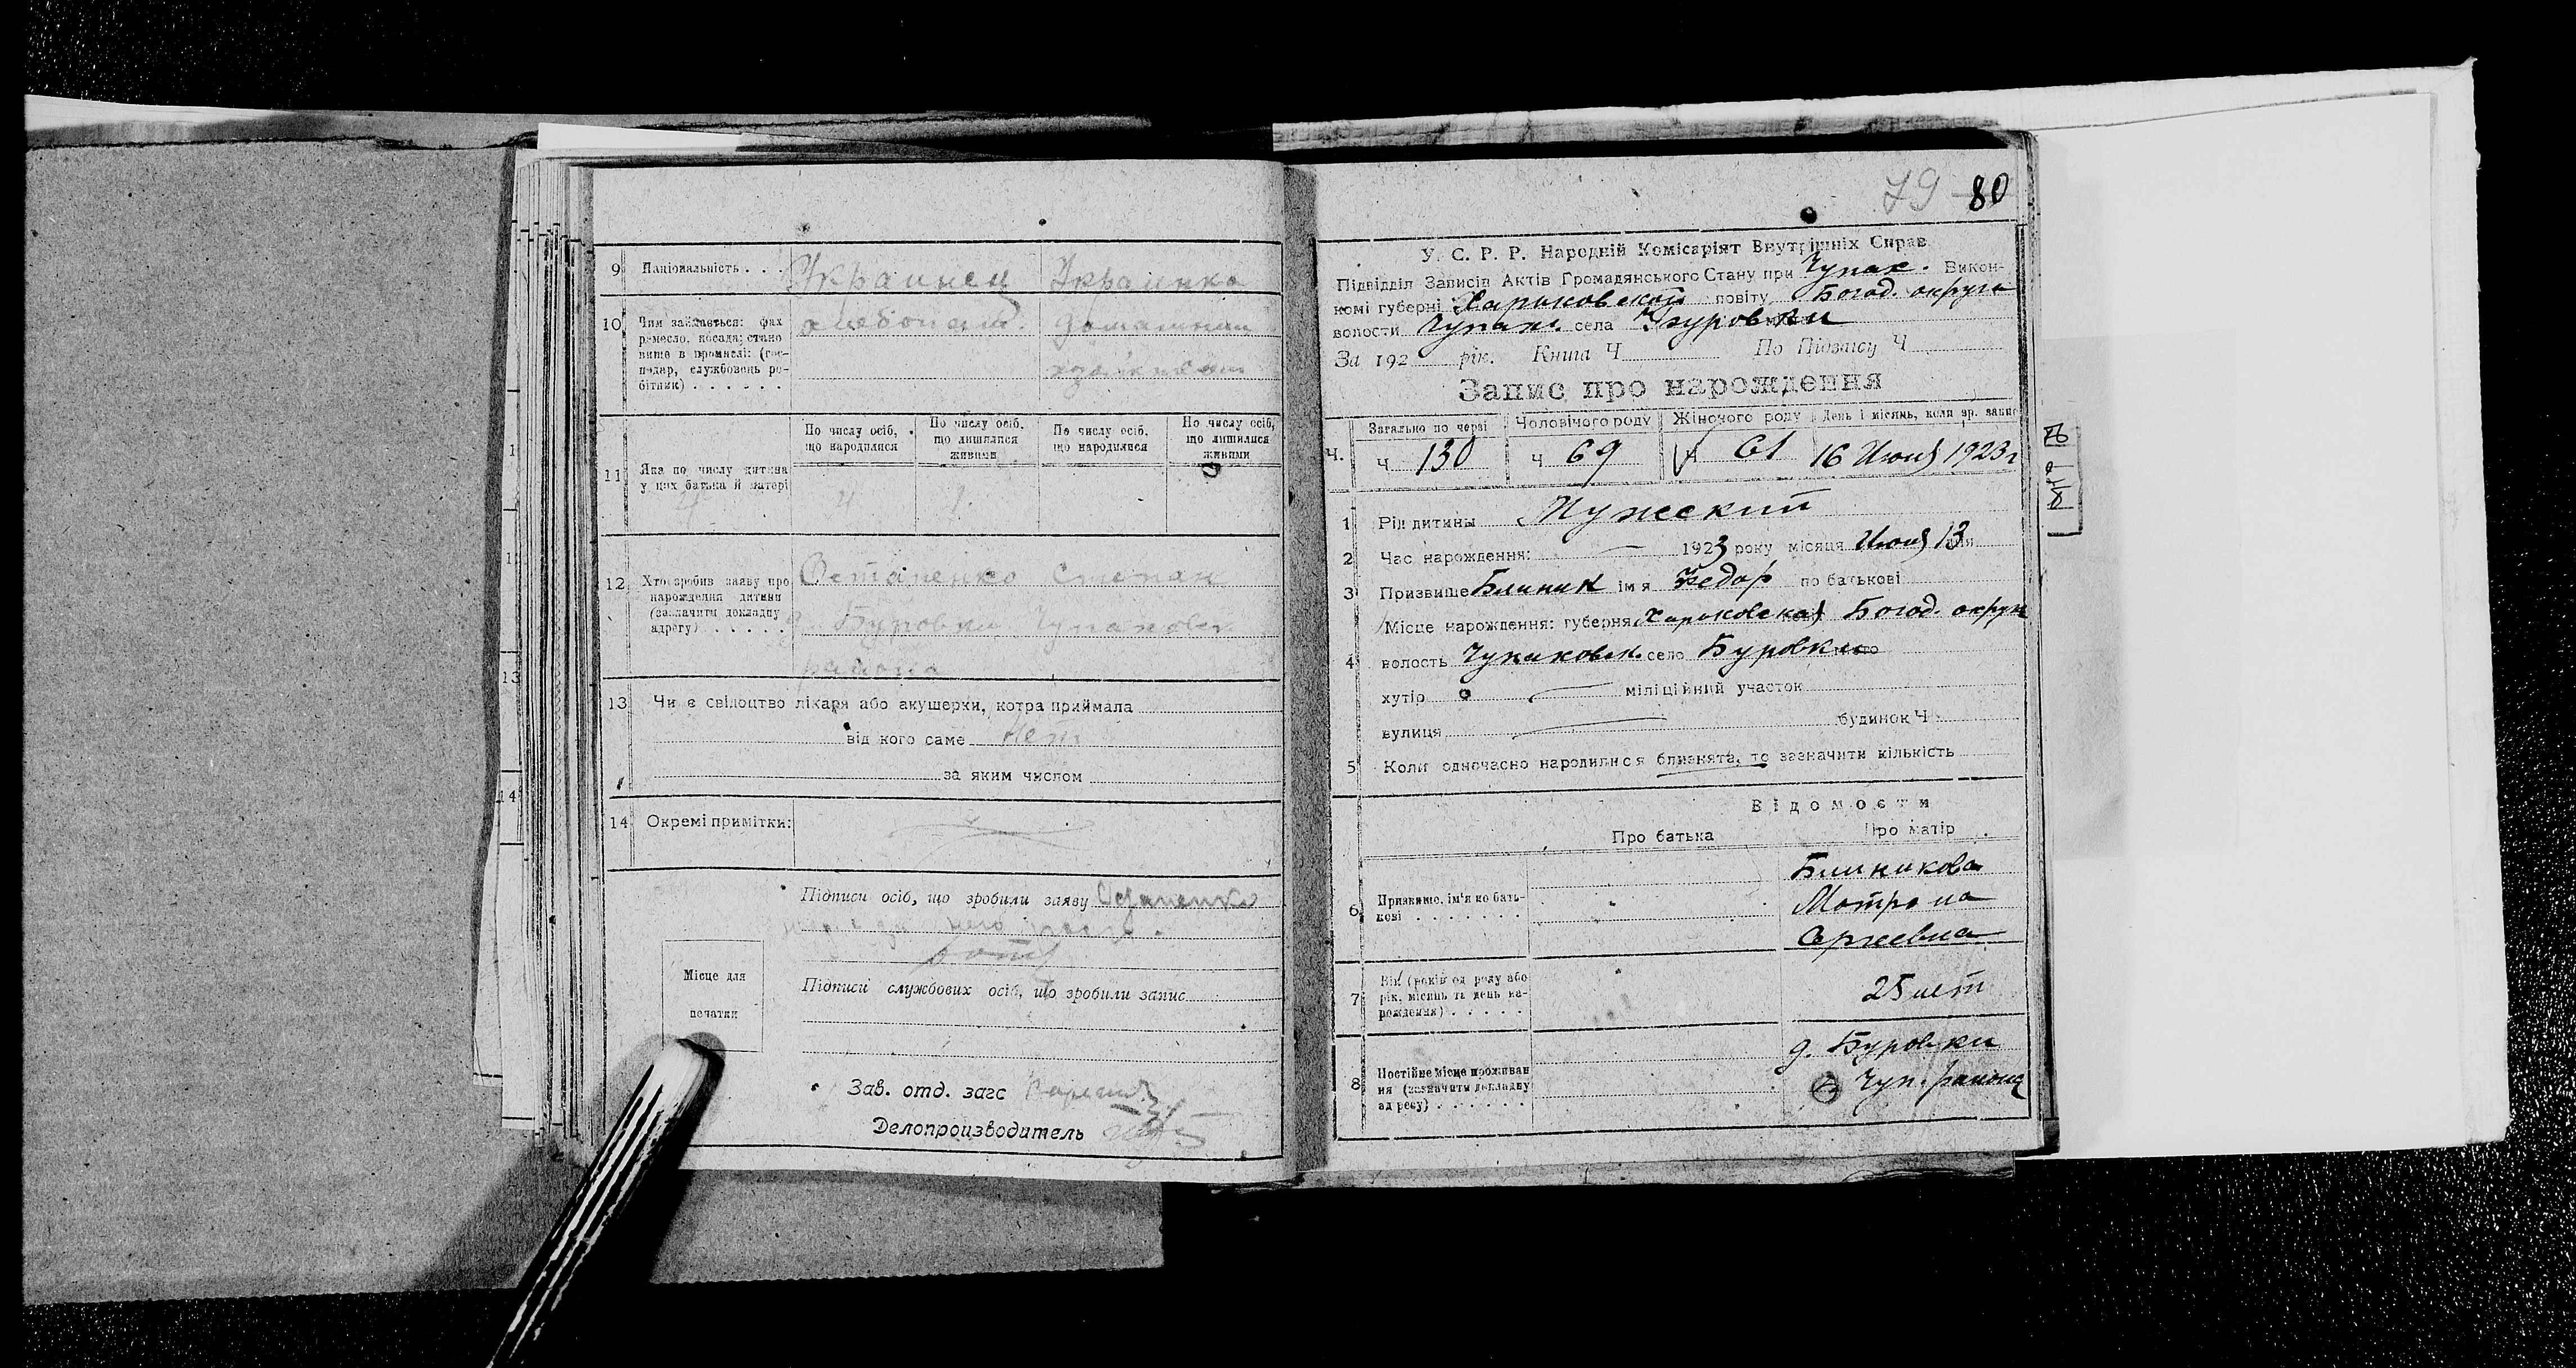 9 Національність . . . Украинец Украинка
10 Чим займається: фах хлебопаш. домашняя
ремесло, посада; стано
вище в промислі: (гос-
подар, службовець ро-
бітник) . . . . . .
По числу осіб, що народилися
По числу осіб, що лишилися живими
По числу осіб, що народилися
По числу осіб, що лишилися живими
11 Яка по числу дитина
у цих батька й матері
4 4 1
12 Хто зробив заяву про Остапенко Степан
нарождення дитини
(зазначити докладну д. Буровки Чупаховск.
адресу) . . . . .
района
13 Чи є свідоцтво лікаря або акушерки, котра приймала
від кого саме Нет
за яким числом
14 Окремі примітки:
Підписи осіб, що зробили заяву Остапенко
Місце для
печатки
Підписи службових осіб, що зробили запис
Зав. отд. загс
Делопроизводитель
1
13
14
79 80
У. С. Р. Р. Народній Комісаріят Внутрішніх Справ
Підвідділ Записів Актів Громадянського Стану при Чупах. Викон-
комі губерні Харьковской повіту Богод. округа
волости Чупах. села Буровки
За 192 рік. Книга Ч По Підзапису Ч
Запис про нарождення
Загально по черзі Чоловічого роду Жіночого роду День і місяць, коли зр. запис
Ч. Ч 130 Ч 69 Ч 61 16 Июня 1923 г
1 Рід дитини Мужеский
2 Час нарождення: 1923 року місяця Июня 13 дня
3 Призвище Блинник ім'я Федор по батькові
Місце нарождення: губерня Харьковская Богод. округ
4 волость Чупаховск. село Буровки
хутір міліційний участок
вулиця будинок Ч
5 Коли одночасно народилися близнята, то зазначити кількість
Відомости
Про батька Про матір
Блинникова
6 Призвище, ім'я по бать- Мотрона
кові . . . . . . .
Сергеевна
7 Вік (років од роду або 25 лет
рік, місяць та день на-
рождення) . . . . .
д. Буровки
8 Постійне місце проживан Чуп. района
ня (зазначити докладну
адресу) . . . . . .